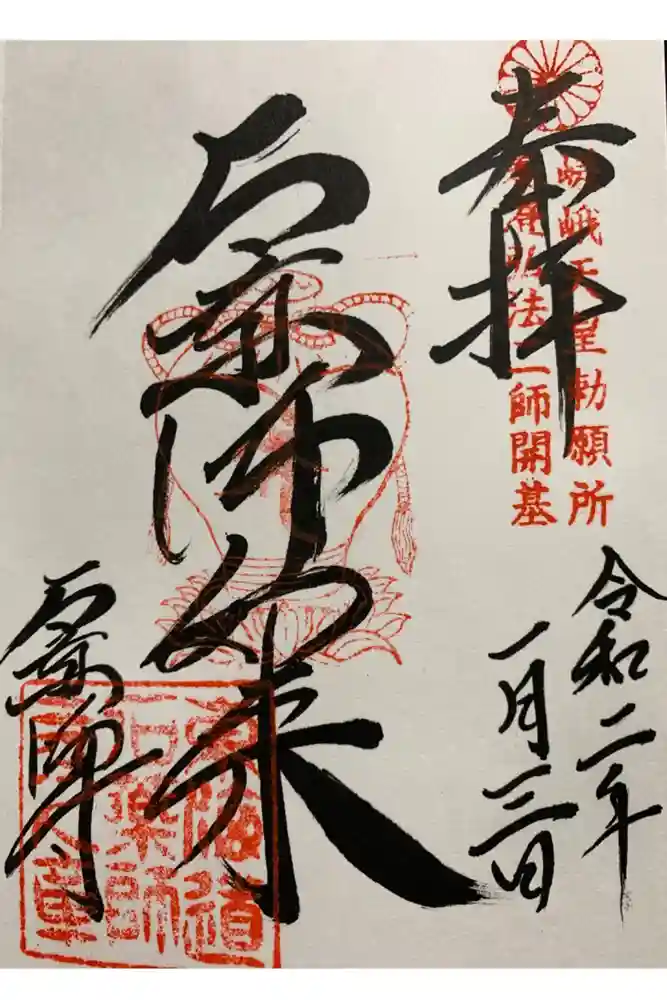 奉拝
嵯峨天皇勅願所
弘法大師開基
令和二年
一月三日
石薬師如来
石薬師
東海道
石薬師